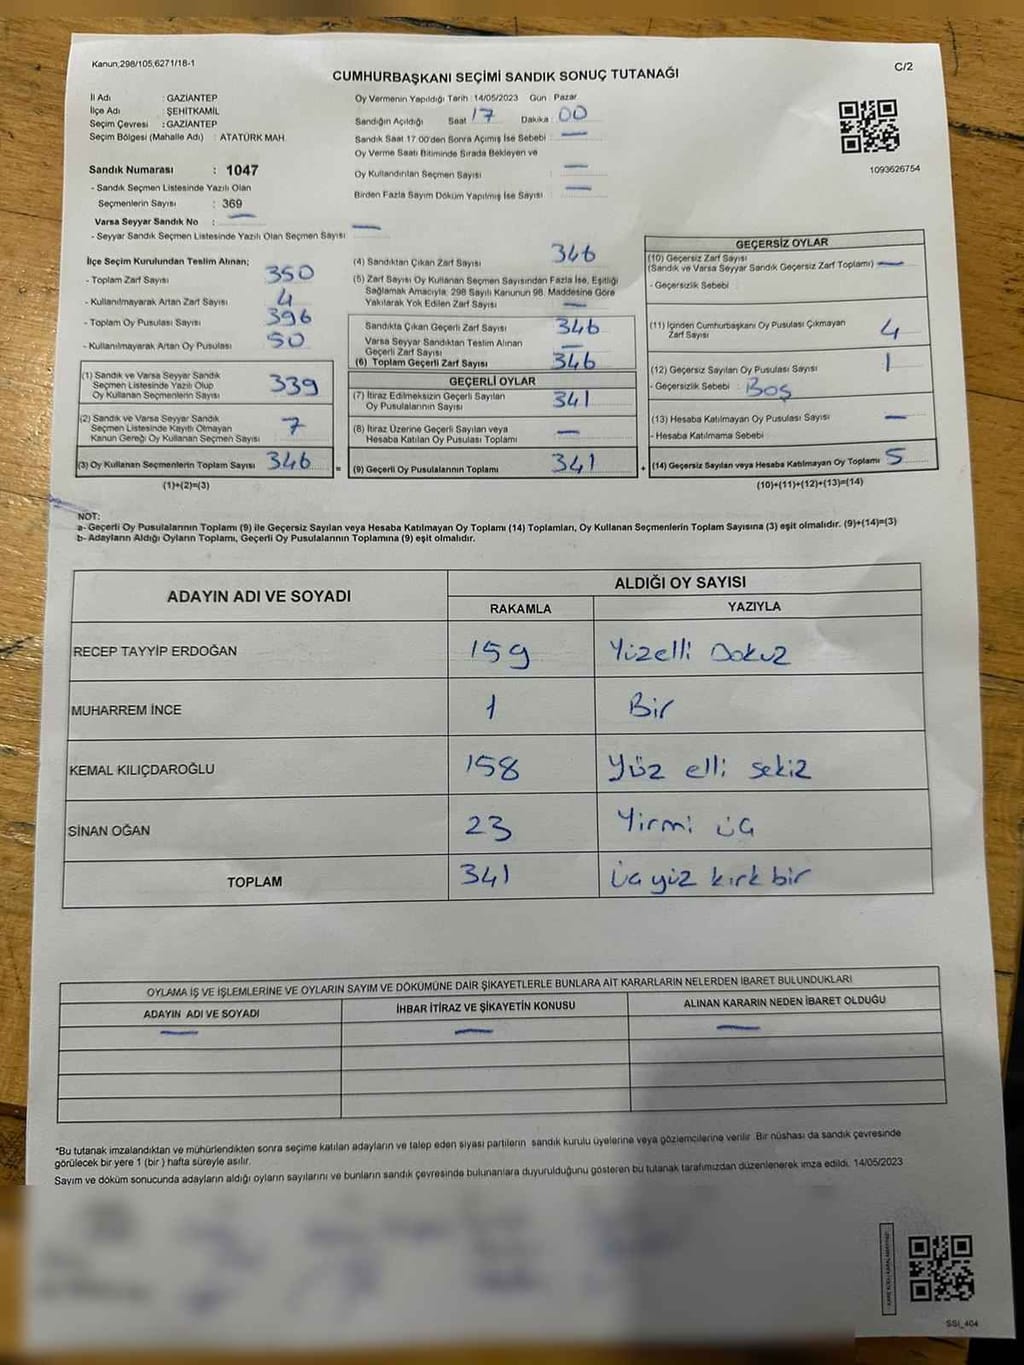 Kanun,298/105,6271/18-1
CUMHURBAŞKANI SEÇİMİ SANDIK SONUÇ TUTANAĞI
C/2
İl Adı : GAZIANTEP
İlçe Adı : ŞEHİTKAMİL
Seçim Çevresi : GAZİANTEP
Seçim Bölgesi (Mahalle Adı) : ATATÜRK MAH.
Sandık Numarası : 1047
- Sandık Seçmen Listesinde Yazılı Olan
Seçmenlerin Sayısı : 369
Varsa Seyyar Sandık No : —
- Seyyar Sandık Seçmen Listesinde Yazılı Olan Seçmen Sayısı : —
Oy Vermenin Yapıldığı Tarih : 14/05/2023 Gün : Pazar
Sandığın Açıldığı Saat 17 Dakika 00
Sandık Saat 17.00'den Sonra Açımış İse Sebebi : —
Oy Verme Saati Bitiminde Sırada Bekleyen ve
Oy Kullandırılan Seçmen Sayısı : —
Birden Fazla Sayım Döküm Yapılmış İse Sayısı : —
1093626754
İlçe Seçim Kurulundan Teslim Alınan;
- Toplam Zarf Sayısı 350
- Kullanılmayarak Artan Zarf Sayısı 4
- Toplam Oy Pusulası Sayısı 396
- Kullanılmayarak Artan Oy Pusulası 50
(1) Sandık ve Varsa Seyyar Sandık
Seçmen Listesinde Yazılı Olup
Oy Kullanan Seçmenlerin Sayısı 339
(2) Sandık ve Varsa Seyyar Sandık
Seçmen Listesinde Kayıtlı Olmayan
Kanun Gereği Oy Kullanan Seçmen Sayısı 7
(3) Oy Kullanan Seçmenlerin Toplam Sayısı 346 =
(1)+(2)=(3)
(4) Sandıktan Çıkan Zarf Sayısı 346
(5) Zarf Sayısı Oy Kullanan Seçmen Sayısından Fazla İse, Eşitliği
Sağlamak Amacıyla; 298 Sayılı Kanunun 98. Maddesine Göre
Yakılarak Yok Edilen Zarf Sayısı —
Sandıkta Çıkan Geçerli Zarf Sayısı 346
Varsa Seyyar Sandıktan Teslim Alınan
Geçerli Zarf Sayısı —
(6) Toplam Geçerli Zarf Sayısı 346
GEÇERLİ OYLAR
(7) İtiraz Edilmeksizin Geçerli Sayılan
Oy Pusulalarının Sayısı 341
(8) İtiraz Üzerine Geçerli Sayılan veya
Hesaba Katılan Oy Pusulası Toplamı —
(9) Geçerli Oy Pusulalarının Toplamı 341 +
GEÇERSİZ OYLAR
(10) Geçersiz Zarf Sayısı
(Sandık ve Varsa Seyyar Sandık Geçersiz Zarf Toplamı) —
- Geçersizlik Sebebi
(11) İçinden Cumhurbaşkanı Oy Pusulası Çıkmayan
Zarf Sayısı 4
(12) Geçersiz Sayılan Oy Pusulası Sayısı 1
- Geçersizlik Sebebi : Boş
(13) Hesaba Katılmayan Oy Pusulası Sayısı —
- Hesaba Katılmama Sebebi
(14) Geçersiz Sayılan veya Hesaba Katılmayan Oy Toplamı 5
(10)+(11)+(12)+(13)=(14)
NOT:
a- Geçerli Oy Pusulalarının Toplamı (9) ile Geçersiz Sayılan veya Hesaba Katılmayan Oy Toplamı (14) Toplamları, Oy Kullanan Seçmenlerin Toplam Sayısına (3) eşit olmalıdır. (9)+(14)=(3)
b- Adayların Aldığı Oyların Toplamı, Geçerli Oy Pusulalarının Toplamına (9) eşit olmalıdır.
ADAYIN ADI VE SOYADI ALDIĞI OY SAYISI
RAKAMLA YAZIYLA
RECEP TAYYİP ERDOĞAN 159 Yüzelli Dokuz
MUHARREM İNCE 1 Bir
KEMAL KILIÇDAROĞLU 158 Yüz elli sekiz
SİNAN OĞAN 23 Yirmi üç
TOPLAM 341 üçyüz kırk bir
OYLAMA İŞ VE İŞLEMLERİNE VE OYLARIN SAYIM VE DÖKÜMÜNE DAİR ŞİKAYETLERLE BUNLARA AİT KARARLARIN NELERDEN İBARET BULUNDUKLARI
ADAYIN ADI VE SOYADI İHBAR İTİRAZ VE ŞİKAYETİN KONUSU ALINAN KARARIN NEDEN İBARET OLDUĞU
— — —
*Bu tutanak imzalandıktan ve mühürlendikten sonra seçime katılan adayların ve talep eden siyasi partilerin sandık kurulu üyelerine veya gözlemcilerine verilir. Bir nüshası da sandık çevresinde
görülecek bir yere 1 (bir ) hafta süreyle asılır.
Sayım ve döküm sonucunda adayların aldığı oyların sayılarını ve bunların sandık çevresinde bulunanlara duyurulduğunu gösteren bu tutanak tarafımızdan düzenlenerek imza edildi. 14/05/2023
SSI_404